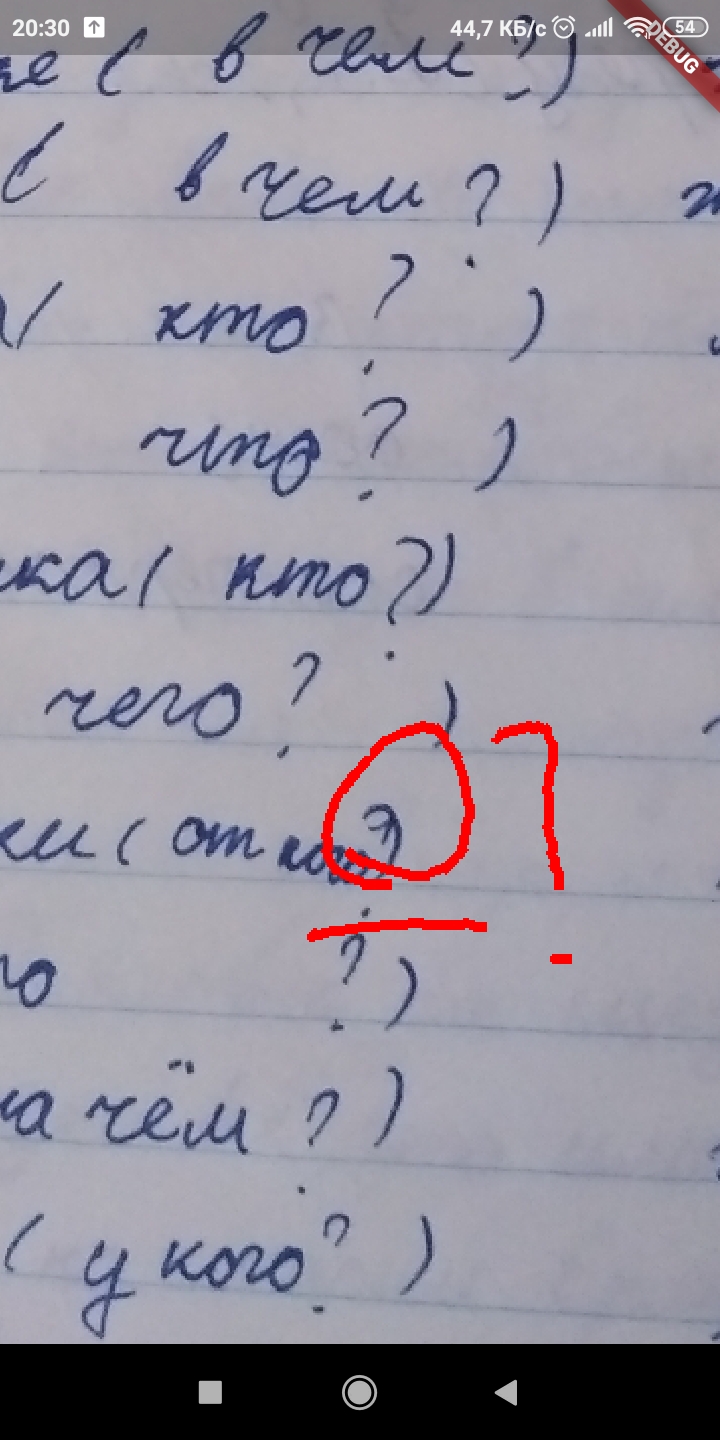 20:30 44,7 КБ/с 54
DEBUG
( в чем?)
( в чем ? )
( кто ? )
что ? )
ка ( кто ?)
чего ? )
ки ( от кого?)
?
? )
на чём ? )
( у кого ? )